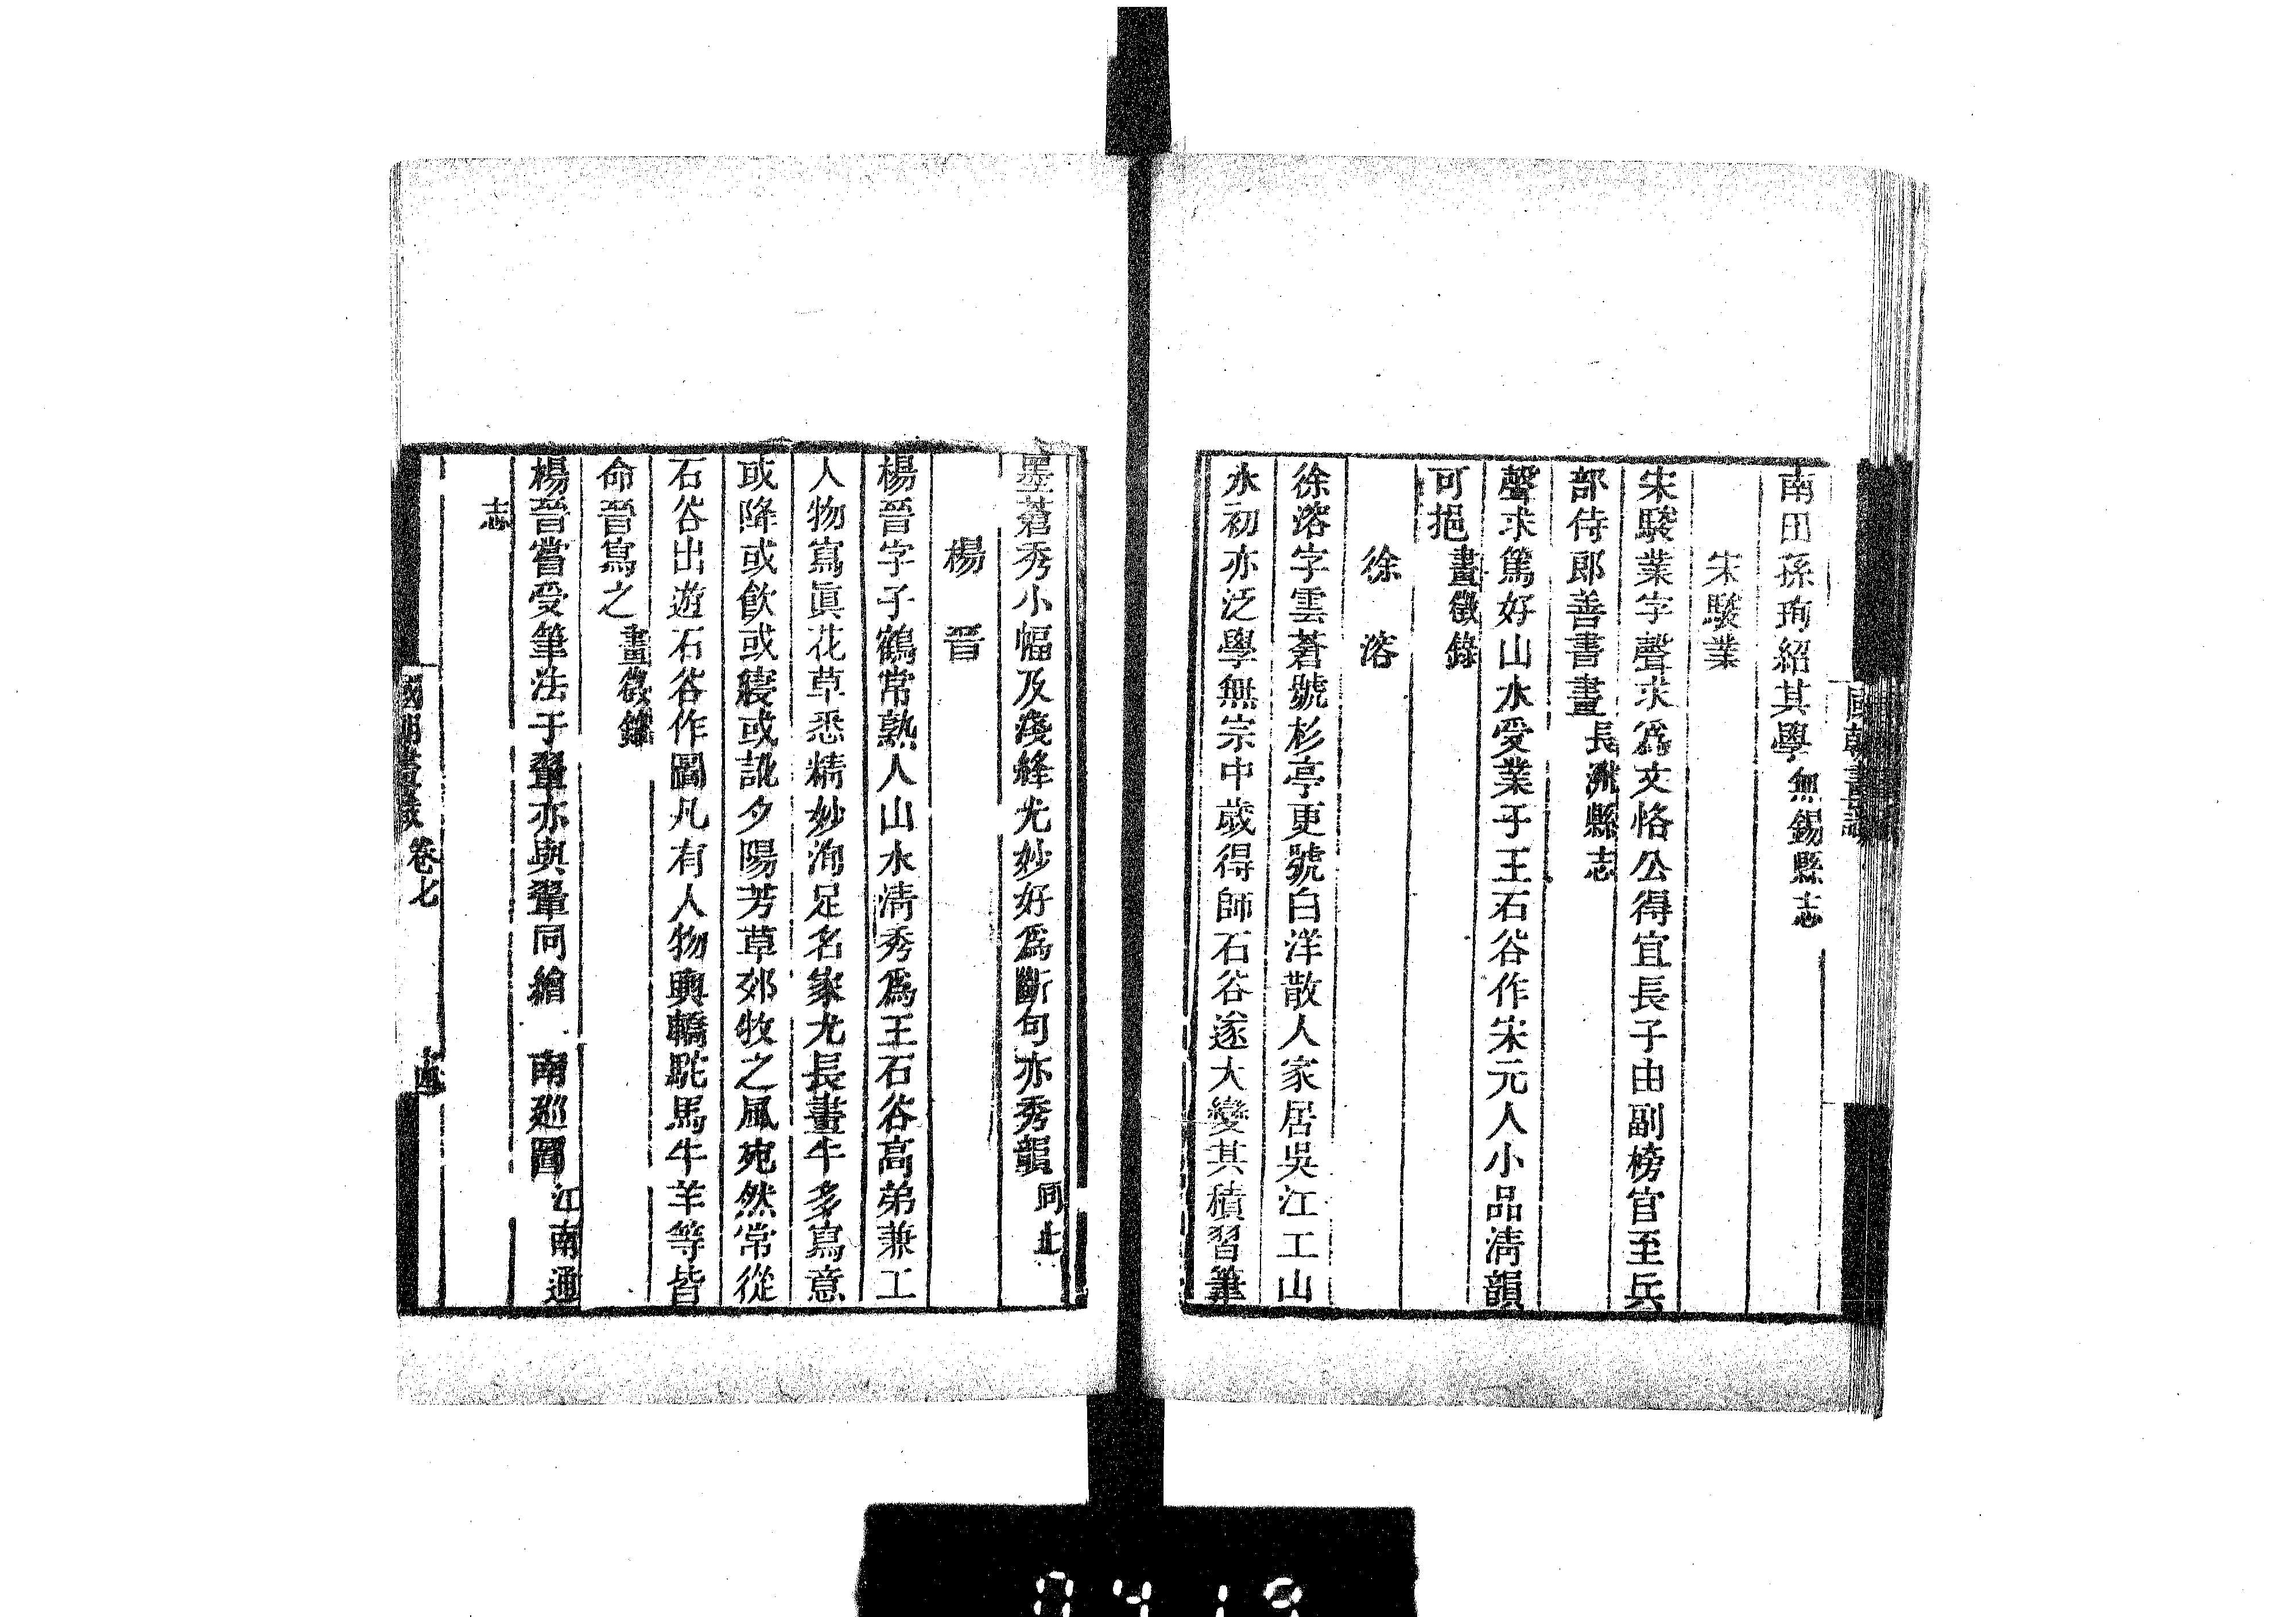 南田孫珣紹其學無錫縣志
宋駿業
宋駿業字聲求爲文恪公得宜長子由副榜官至兵
部侍郎善書畫長洲縣志
聲求篤好山水受業于王石谷作宋元人小品淸韻
可挹畫徵錄
徐溶
徐溶字雲蒼號杉亭更號白洋散人家居吳江工山
水初亦泛學無宗中歲得師石谷遂大變其積習筆
墨蒼秀小幅及淺絳尤妙好爲斷句亦秀韻同上
楊晉
楊晉字子鶴常熟人山水淸秀爲王石谷高弟兼工
人物寫眞花草悉精妙洵足名家尤長畫牛多寫意
或降或飮或寢或訛夕陽芳草郊牧之風宛然常從
石谷出遊石谷作圖凡有人物輿轎駝馬牛羊等皆
命晉寫之畫徵錄
楊晉嘗受筆法于翬亦與翬同繪 南廵圖江南通
志
國朝畫識 卷七
0419